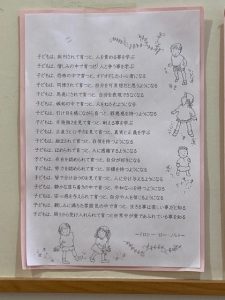 子どもは、批判されて育つと、人を責める事を学ぶ
子どもは、憎しみの中で育つと、人と争う事を学ぶ
子どもは、恐怖の中で育つと、オドオドした小心者になる
子どもは、同情されて育つと、自分を可哀想だと思うようになる
子どもは、馬鹿にされて育つと、自分を表現できなくなる
子どもは、嫉妬の中で育つと、人をねたむようになる
子どもは、引け目を感じながら育つと、罪悪感を持つようになる
子どもは、辛抱強さを見て育つと、耐える事を学ぶ
子どもは、正直さと公平さを見て育つと、真実と正義を学ぶ
子どもは、励まされて育つと、自信を持つようになる
子どもは、ほめられて育つと、人に感謝するようになる
子どもは、存在を認められて育つと、自分が好きになる
子どもは、努力を認められて育つと、目標を持つようになる
子どもは、皆で分け合うのを見て育つと、人に分け与えるようになる
子どもは、静かな落ち着きの中で育つと、平和な心を持つようになる
子どもは、安心感を与えられて育つと、自分や人を信じるようになる
子どもは、親しみに満ちた雰囲気の中で育つと、生きる事は楽しい事だと知る
子どもは、周りから受け入れられて育つと世界中が愛であふれている事を知る
ードロシー・ロー・ノルトー